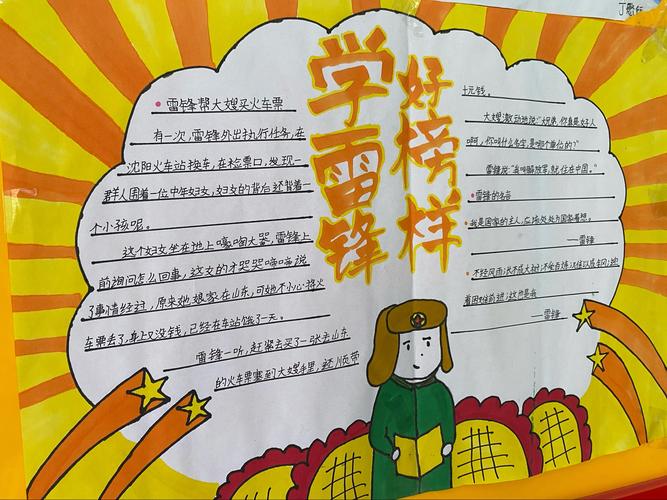 学雷锋
好榜样
雷锋帮大嫂买火车票
有一次,雷锋外出执行任务,在
沈阳火车站换车,在检票口,发现一
群人围着一位中年妇女,妇女的背后还背着一
个小孩呢。
这个妇女坐在地上嚎啕大哭,雷锋上
前询问怎么回事,这女的才哭哭啼啼说
了事情经过,原来她娘家在山东,可她不小心将火
车票丢了,身上又没钱,已经在车站饿了一天。
雷锋一听,赶紧去买了一张去山东
的火车票塞到大嫂手里,还顺带
十元钱。
大嫂激动地说"兄弟,你真是好人
啊,你叫什么名字,是哪个单位的?"
雷锋说"我叫解放军,就住在中国。"
雷锋的名言
我是国家的主人,应该处处为国家着想。
——雷锋
不经风雨,长不成大树;不受百炼,难以成钢;迎
着困难前进,这也是我
——雷锋